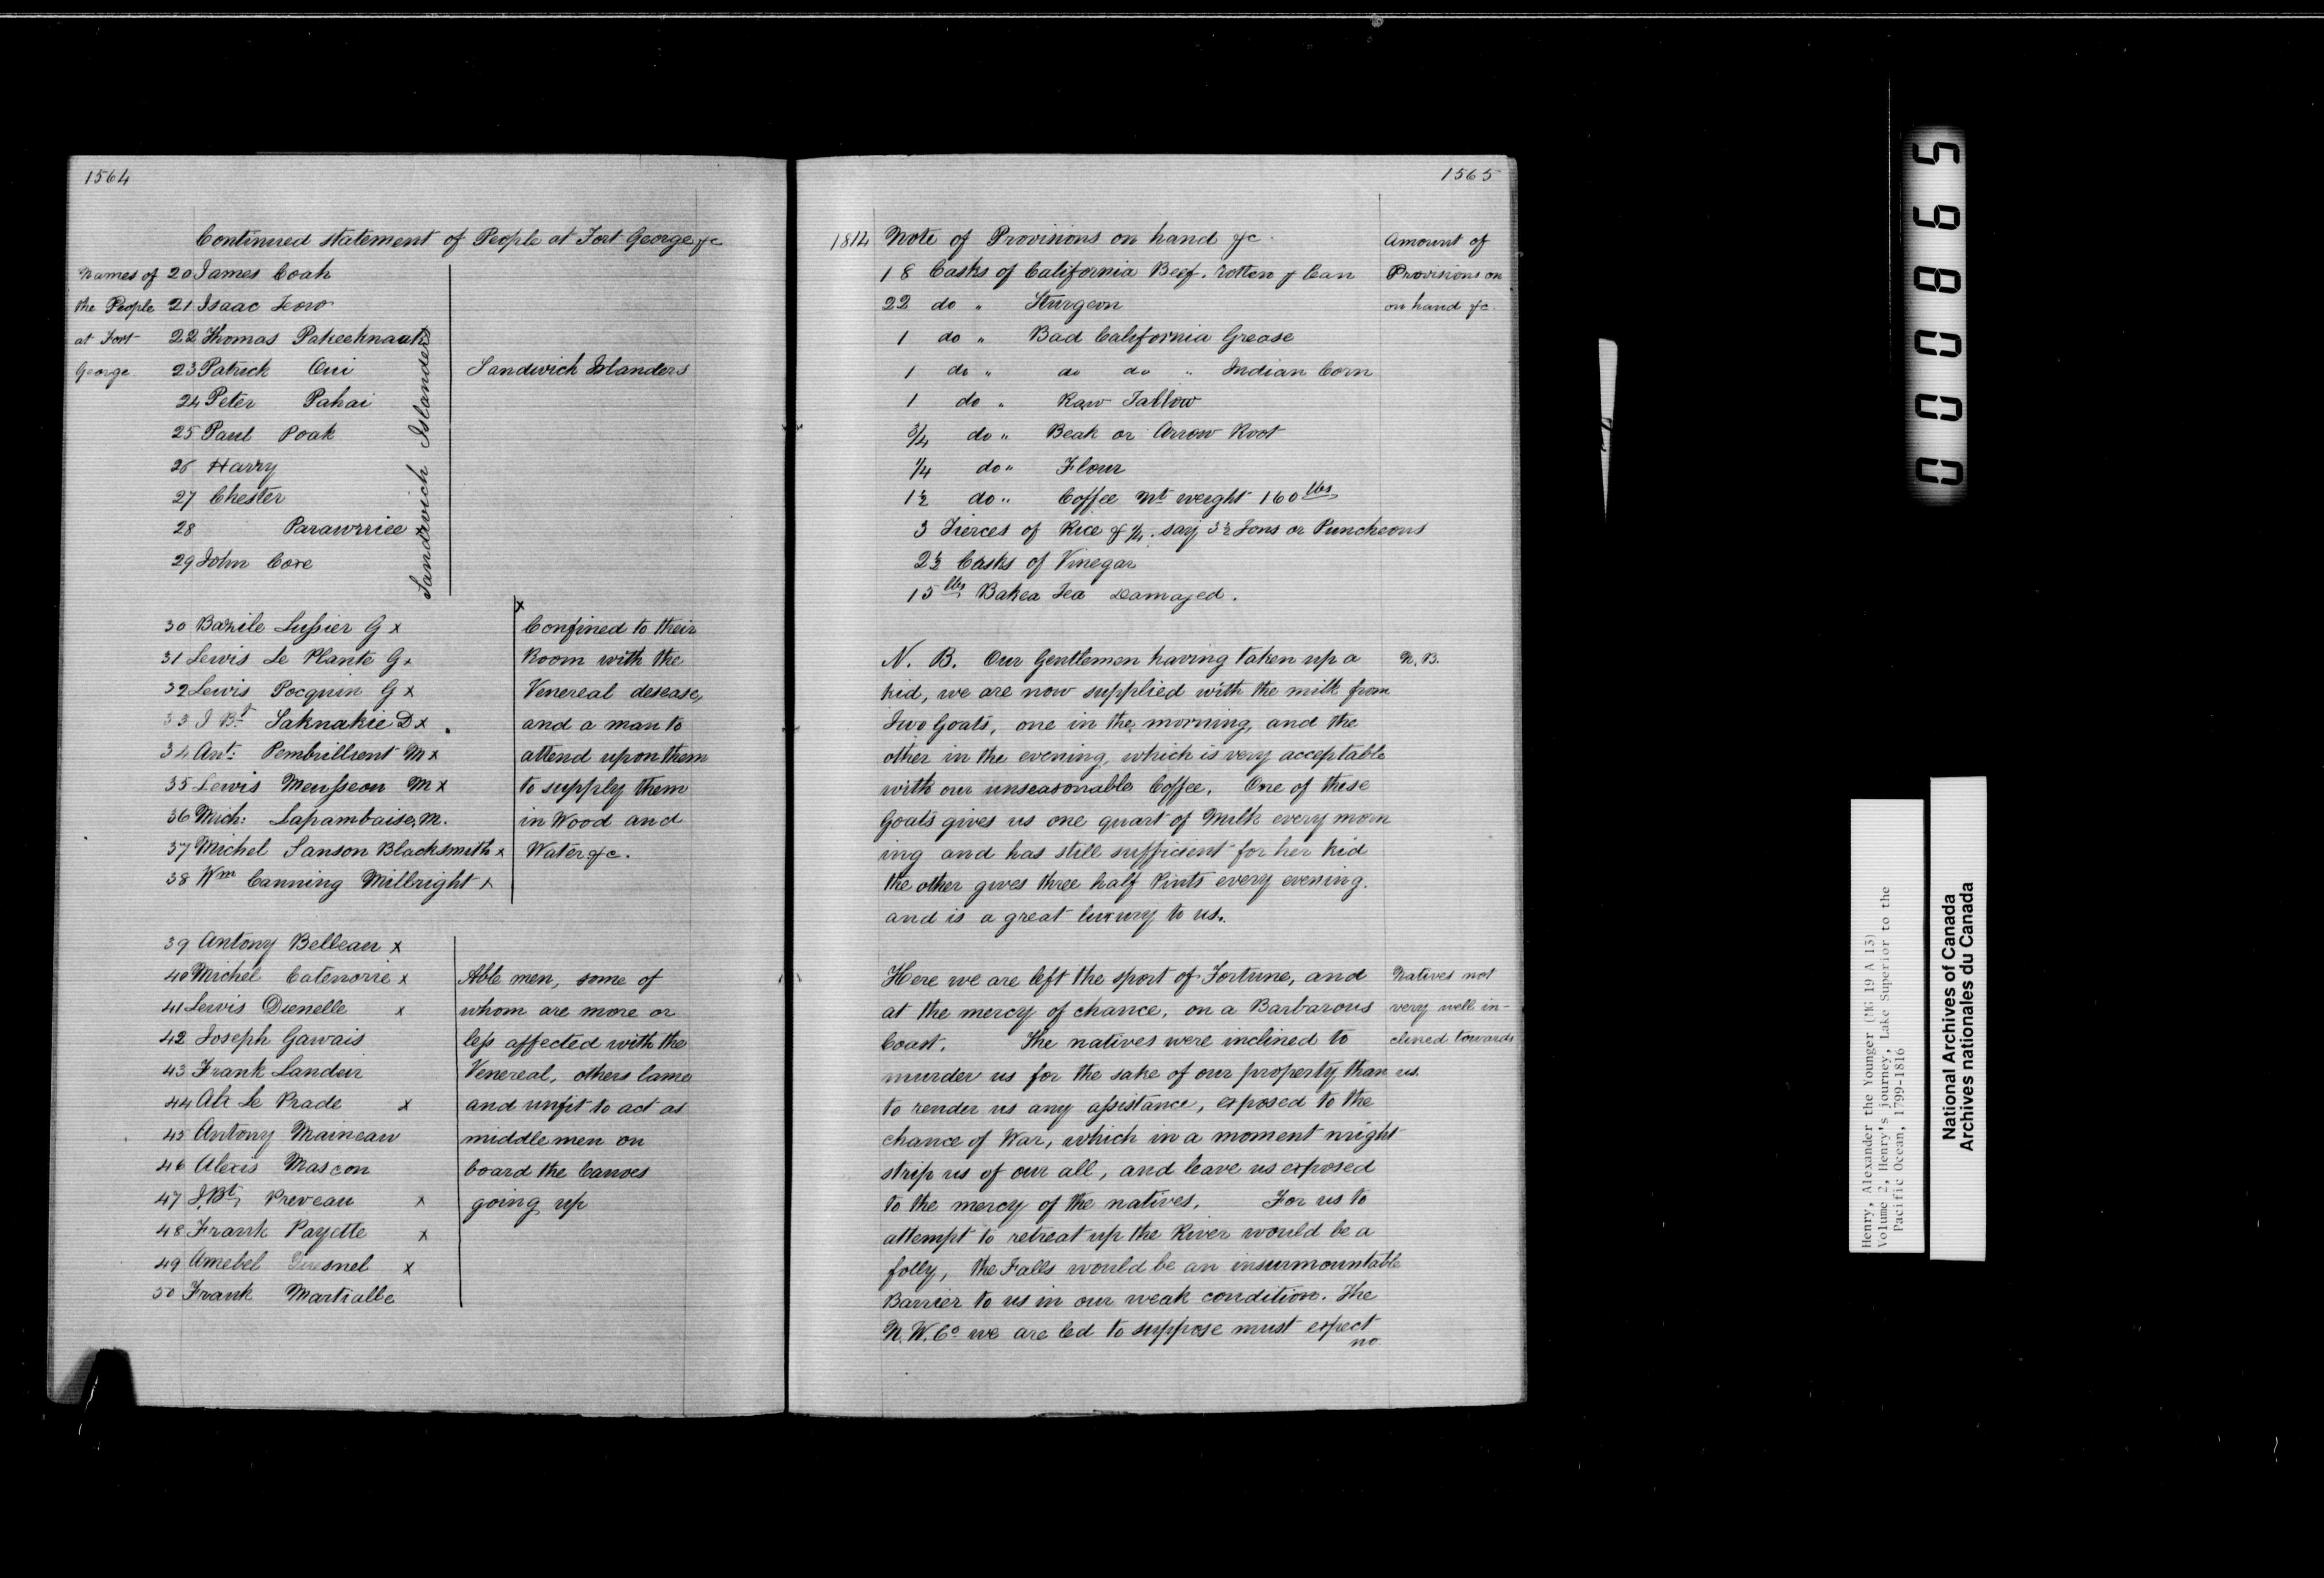 1564
Continued statement of People at Fort George &c
Names of
the People
at Fort
George
20 James Coah
21 Isaac Teow
22 Thomas Pakeeknaak
23 Patrick Oui
24 Peter Pahai
25 Paul Poak
26 Harry
27 Chester
28 Parawrriee
29 John Coxe
Sandwich Islanders
Sandwich Islanders
30 Bazile Lussier G x
31 Lewis Le Plante G x
32 Lewis Pocquin G x
33 J Bt Saknakie D x
34 Ant: Pembrillient M x
35 Lewis Mensseon M x
36 Mich: Lapambaise, M.
37 Michel Sanson Blacksmith x
38 Wm Canning Millright x
x
Confined to their
Room with the
Venereal desease,
and a man to
attend upon them
to supply them
in Wood and
Water &c.
39 Antony Belleau x
40 Michel Catenorie x
41 Lewis Dienelle x
42 Joseph Gawais
43 Frank Landur
44 Alr Le Prade x
45 Antony Maineau
46 Alexis Mascon
47 J. Bt, Preveau x
48 Frank Payette x
49 Amebel x
50 Frank Martialle
Able men, some of
whom are more or
less affected with the
Venereal, others lame
and unfit to act as
middlemen on
board the Canoes
going up
1565
1814 Note of Provisions on hand &c.
18 Casks of California Beef. rotten & lean
22 do " Sturgeon
1 do " Bad California Grease
1 do " do do " Indian Corn
1 do " Raw Tallow
3/4 do " Beak or Arrow Root
1/4 do " Flour
1½ do " Coffee Nt weight 160 lbs
3 Tierces of Rice & ¼. say 3½ Tons or Puncheons
2½ Casks of Vinegar
15 lbs Bahea Tea Damaged.
Amount of
Provisions on
on hand &c.
N. B. Our Gentlemen having taken up a
kid, we are now supplied with the milk from
Two Goats, one in the morning, and the
other in the evening, which is very acceptable
with our unseasonable Coffee. One of these
Goats gives us one quart of Milk every morn
ing and has still sufficient for her kid
the other gives three half Pints every evening.
and is a great luxury to us.
N. B.
Here we are left the sport of Fortune, and
at the mercy of chance, on a Barbarous
Coast. The natives were inclined to
murder us for the sake of our property than
to render us any assistance, exposed to the
chance of War, which in a moment might
strip us of our all, and leave us exposed
to the mercy of the natives. For us to
attempt to retreat up the River would be a
folly, the Falls would be an insurmountable
Barrier to us in our weak condition. The
N. W. Co we are led to suppose must expect
no
Natives not
very well in-
clined towards
us.
000865
Henry, Alexander the Younger (MG 19 A 13)
Volume 2, Henry's journey, Lake Superior to the
Pacific Ocean, 1799-1816
National Archives of Canada
Archives nationales du Canada